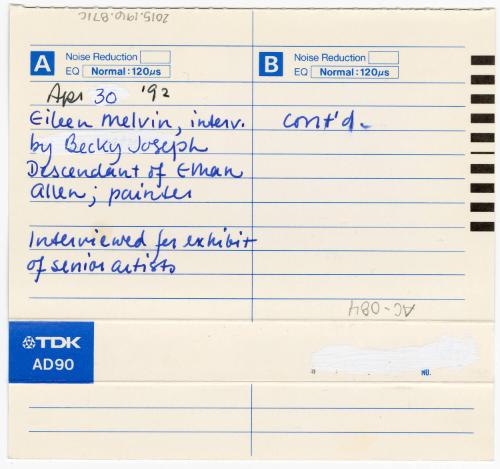 2015.196.871c
A Noise Reduction
EQ Normal:120µs
B Noise Reduction
EQ Normal:120µs
Apr 30 '92
Eileen Melvin, interv.
by Becky Joseph
Descendant of Ethan
Allen; painter
Interviewed for exhibit
of senior artists
cont'd.
AC-084
TDK
AD90
NO.